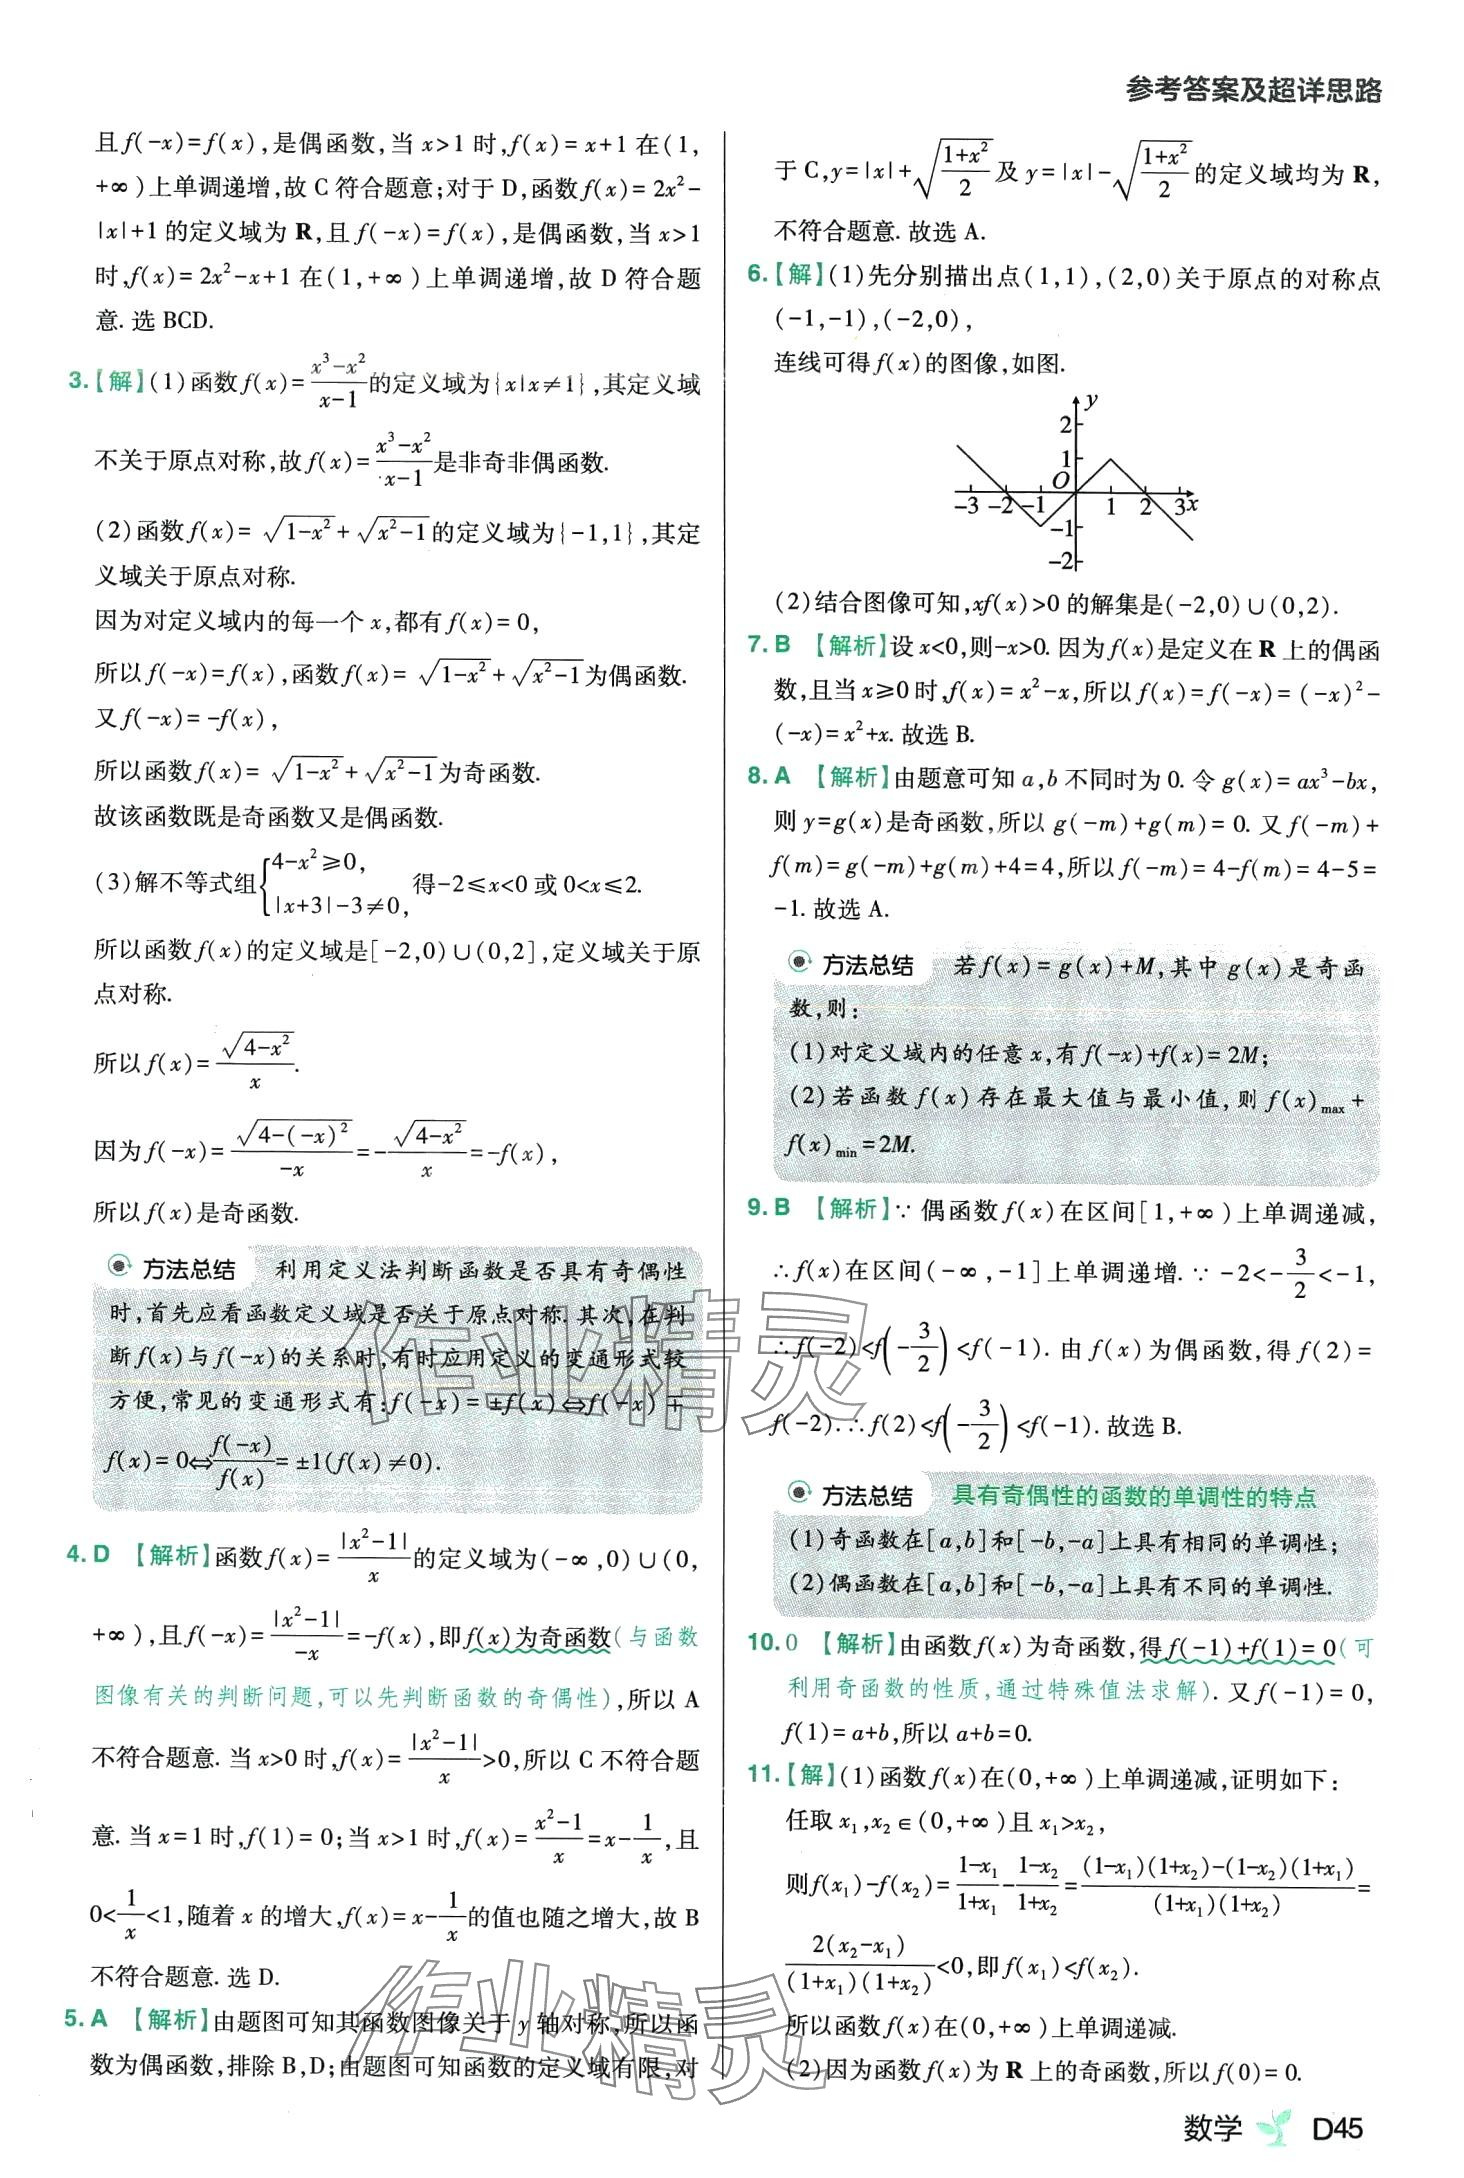 参考答案及超详思路
且f(-x)=f(x),是偶函数,当x>1时,f(x)=x+1在(1,
+∞)上单调递增,故C符合题意;对于D,函数f(x)=2x²-
|x|+1的定义域为R,且f(-x)=f(x),是偶函数,当x>1
时,f(x)=2x²-x+1在(1,+∞)上单调递增,故D符合题
意.选BCD.
3.【解】(1)函数f(x)=(x³-x²)/(x-1)的定义域为{x|x≠1},其定义域
不关于原点对称,故f(x)=(x³-x²)/(x-1)是非奇非偶函数.
(2)函数f(x)=√(1-x²)+√(x²-1)的定义域为{-1,1},其定
义域关于原点对称.
因为对定义域内的每一个x,都有f(x)=0,
所以f(-x)=f(x),函数f(x)=√(1-x²)+√(x²-1)为偶函数.
又f(-x)=-f(x),
所以函数f(x)=√(1-x²)+√(x²-1)为奇函数.
故该函数既是奇函数又是偶函数.
(3)解不等式组{4-x²≥0, |x+3|-3≠0, 得-2≤x<0或0<x≤2.
所以函数f(x)的定义域是[-2,0)∪(0,2],定义域关于原
点对称.
所以f(x)=√(4-x²)/x.
因为f(-x)=√(4-(-x)²)/(-x)=-√(4-x²)/x=-f(x),
所以f(x)是奇函数.
方法总结 利用定义法判断函数是否具有奇偶性
时,首先应看函数定义域是否关于原点对称.其次,在判
断f(x)与f(-x)的关系时,有时应用定义的变通形式较
方便,常见的变通形式有:f(-x)=±f(x)⇔f(-x)∓
f(x)=0⇔f(-x)/f(x)=±1(f(x)≠0).
4.D 【解析】函数f(x)=|x²-1|/x的定义域为(-∞,0)∪(0,
+∞),且f(-x)=|x²-1|/(-x)=-f(x),即f(x)为奇函数(与函数
图像有关的判断问题,可以先判断函数的奇偶性),所以A
不符合题意.当x>0时,f(x)=|x²-1|/x>0,所以C不符合题
意.当x=1时,f(1)=0;当x>1时,f(x)=(x²-1)/x=x-1/x,且
0<1/x<1,随着x的增大,f(x)=x-1/x的值也随之增大,故B
不符合题意.选D.
5.A 【解析】由题图可知其函数图像关于y轴对称,所以函
数为偶函数,排除B,D;由题图可知函数的定义域有限,对
于C,y=|x|+√((1+x²)/2)及y=|x|-√((1+x²)/2)的定义域均为R,
不符合题意.故选A.
6.【解】(1)先分别描出点(1,1),(2,0)关于原点的对称点
(-1,-1),(-2,0),
连线可得f(x)的图像,如图.
y
2
1
O
-3 -2 -1 1 2 3 x
-1
-2
(2)结合图像可知,xf(x)>0的解集是(-2,0)∪(0,2).
7.B 【解析】设x<0,则-x>0.因为f(x)是定义在R上的偶函
数,且当x≥0时,f(x)=x²-x,所以f(x)=f(-x)=(-x)²-
(-x)=x²+x.故选B.
8.A 【解析】由题意可知a,b不同时为0.令g(x)=ax³-bx,
则y=g(x)是奇函数,所以g(-m)+g(m)=0.又f(-m)+
f(m)=g(-m)+g(m)+4=4,所以f(-m)=4-f(m)=4-5=
-1.故选A.
方法总结 若f(x)=g(x)+M,其中g(x)是奇函
数,则:
(1)对定义域内的任意x,有f(-x)+f(x)=2M;
(2)若函数f(x)存在最大值与最小值,则f(x)max+
f(x)min=2M.
9.B 【解析】∵偶函数f(x)在区间[1,+∞)上单调递减,
∴f(x)在区间(-∞,-1]上单调递增.∵-2<-3/2<-1,
∴f(-2)<f(-3/2)<f(-1).由f(x)为偶函数,得f(2)=
f(-2).∴f(2)<f(-3/2)<f(-1).故选B.
方法总结 具有奇偶性的函数的单调性的特点
(1)奇函数在[a,b]和[-b,-a]上具有相同的单调性;
(2)偶函数在[a,b]和[-b,-a]上具有不同的单调性.
10.0 【解析】由函数f(x)为奇函数,得f(-1)+f(1)=0(可
利用奇函数的性质,通过特殊值法求解).又f(-1)=0,
f(1)=a+b,所以a+b=0.
11.【解】(1)函数f(x)在(0,+∞)上单调递减,证明如下:
任取x₁,x₂∈(0,+∞)且x₁>x₂,
则f(x₁)-f(x₂)=(1-x₁)/(1+x₁)-(1-x₂)/(1+x₂)=((1-x₁)(1+x₂)-(1-x₂)(1+x₁))/((1+x₁)(1+x₂))=
2(x₂-x₁)/((1+x₁)(1+x₂))<0,即f(x₁)<f(x₂).
所以函数f(x)在(0,+∞)上单调递减.
(2)因为函数f(x)为R上的奇函数,所以f(0)=0.
作业精灵
作业精灵
数学 D45